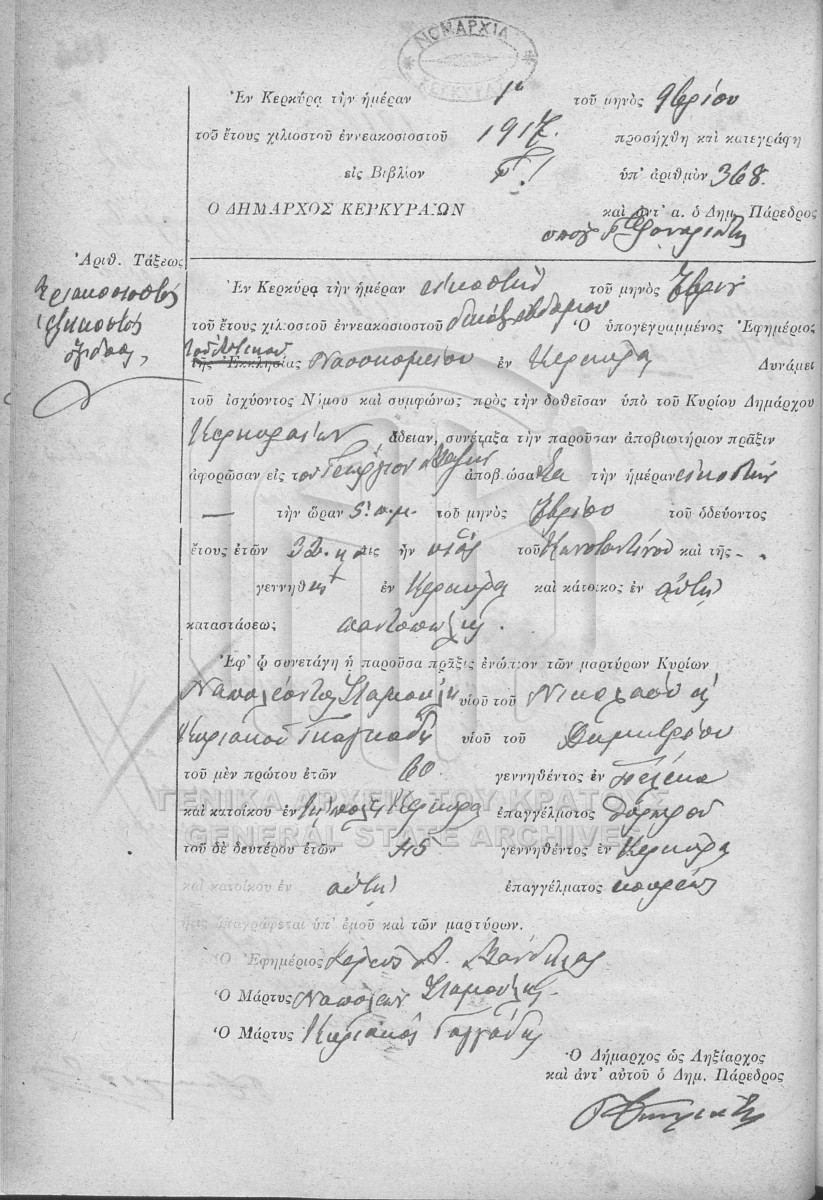 ΝΟΜΑΡΧΙΑ
ΚΕΡΚΥΡΑΣ
Ἐν Κερκύρᾳ τὴν ἡμέραν 1ῃ τοῦ μηνὸς 9βρίου
τοῦ ἔτους χιλιοστοῦ ἐννεακοσιοστοῦ 1917. προσήχθη καὶ κατεγράφη
εἰς Βιβλίον Γ! ὑπ' ἀριθμὸν 368.
Ο ΔΗΜΑΡΧΟΣ ΚΕΡΚΥΡΑΙΩΝ καὶ ἀντ' α. ὁ Δημ. Πάρεδρος
Ἀριθ. Τάξεως
τριακοσιοστὸς
ἑξηκοστὸς
ὄγδοος
Ἐν Κερκύρᾳ τὴν ἡμέραν εἰκοστὴν τοῦ μηνὸς
τοῦ ἔτους χιλιοστοῦ ἐννεακοσιοστοῦ δεκάτου ἑβδόμου Ὁ ὑπογεγραμμένος Ἐφημέριος
τῆς Ἐκκλησίας Νοσοκομείου ἐν Κερκύρᾳ Δυνάμει
τοῦ ἰσχύοντος Νόμου καὶ συμφώνως πρὸς τὴν δοθεῖσαν ὑπὸ τοῦ Κυρίου Δημάρχου
Κερκυραίων ἄδειαν, συνέταξα τὴν παροῦσαν ἀποβιωτήριον πρᾶξιν
ἀφορῶσαν εἰς τον Γεώργιον ἀποβιώσαντα τὴν ἡμέραν εἰκοστὴν
— τὴν ὥραν 5! π.μ. τοῦ μηνὸς τοῦ ὁδεύοντος
ἔτους ἐτῶν 32. κ εις ἦν υἱὸς τοῦ Κωνσταντίνου καὶ τῆς -.
γεννηθεὶς ἐν Κερκύρᾳ καὶ κάτοικος ἐν αὐτῇ
καταστάσεως παντοπώλης.
Ἐφ' ᾧ συνετάγη ἡ παροῦσα πρᾶξις ἐνώπιον τῶν μαρτύρων Κυρίων
Ναπολέοντος Σταμούλη υἱοῦ τοῦ Νικολάου κ
Κυριακοῦ Γκαγκάδη υἱοῦ τοῦ Δημητρίου
τοῦ μὲν πρώτου ἐτῶν 60 γεννηθέντος ἐν Πέλεκα
καὶ κατοίκου ἐν τῇ πόλει Κερκύρᾳ ἐπαγγέλματος θυρωροῦ
τοῦ δὲ δευτέρου ἐτῶν 45 γεννηθέντος ἐν Κερκύρᾳ
καὶ κατοίκου ἐν αὐτῇ ἐπαγγέλματος κουρέως
ἥτις ὑπογράφεται ὑπ' ἐμοῦ καὶ τῶν μαρτύρων.
Ὁ Ἐφημέριος Ἱερεὺς
Ὁ Μάρτυς Ναπολέων Σταμούλης
Ὁ Μάρτυς Κυριακὸς Γαγγάδης
Ὁ Δήμαρχος ὡς Ληξίαρχος
καὶ ἀντ' αὐτοῦ ὁ Δημ. Πάρεδρος
ΓΕΝΙΚΑ ΑΡΧΕΙΑ ΤΟΥ ΚΡΑΤΟΥΣ
GENERAL STATE ARCHIVES